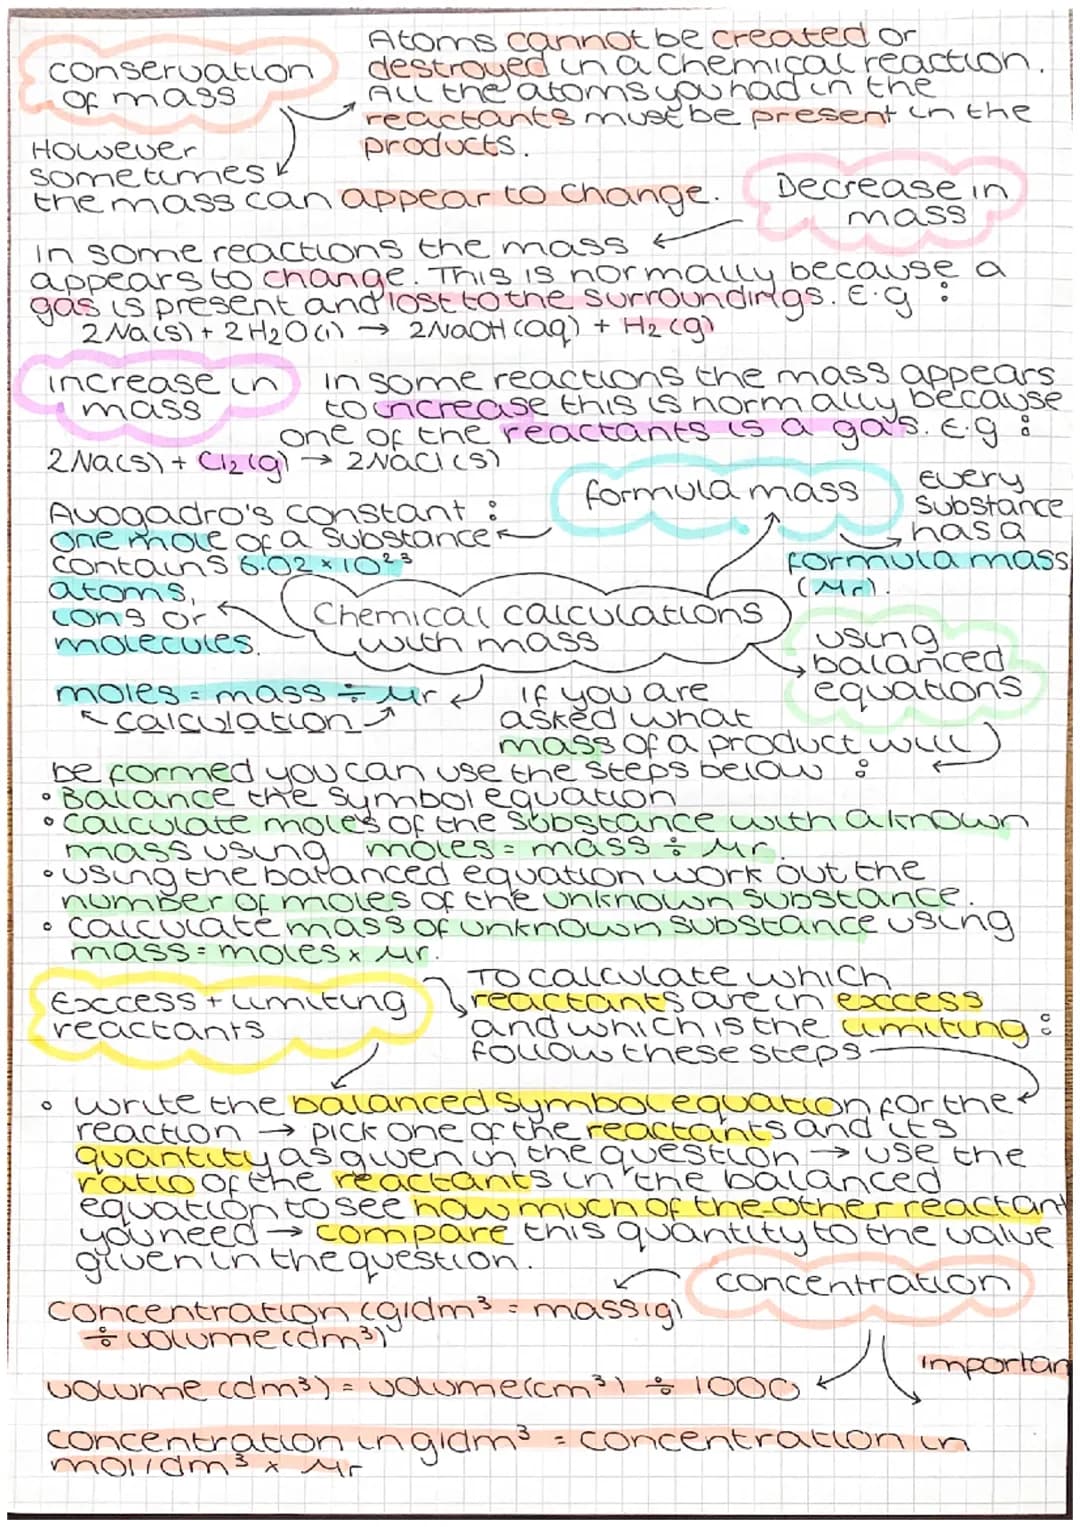 conservation
of mass
Atoms cannot be created or
destroyed in a chemical reaction.
All the atoms you had in the
reactants must be present in the
products.
However
sometimes
the mass can appear to change.
Decrease in
mass
in some reactions the mass
appears to change. This is normally because a
gas is present and lost to the surroundings. E.g :
2Na(s) + 2H2O(l) → 2NaOH(aq) + H2(g)
increase in
mass
in some reactions the mass appears
to increase this is normally because
one of the reactants is a gas. E.g :
2Na(s) + Cl2(g) → 2NaCl(s)
formula mass
Every
substance
has a
formula mass
(Mr).
Avogadro's constant :
one mole of a substance
contains 6.02 × 10²³
atoms,
ions or
molecules.
Chemical calculations
with mass
using
balanced
equations
moles = mass ÷ Mr
calculation
if you are
asked what
mass of a product will
be formed you can use the steps below :
• Balance the symbol equation
• calculate moles of the substance with a known
mass using moles = mass ÷ Mr.
• using the balanced equation work out the
number of moles of the unknown substance.
• calculate mass of unknown substance using
mass = moles × Mr.
Exccess + limiting
reactants
To calculate which
reactants are in exccess
and which is the limiting :
follow these steps
• write the balanced symbol equation for the
reaction → pick one of the reactants and it's
quantity as given in the question → use the
ratio of the reactants in the balanced
equation to see how much of the other reactant
you need → compare this quantity to the value
given in the question.
concentration
concentration (g/dm³ = mass(g)
÷ volume (dm³)
importan
volume (dm³) = volume (cm³) ÷ 1000
concentration in g/dm³ = concentration in
mol/dm³ × Mr